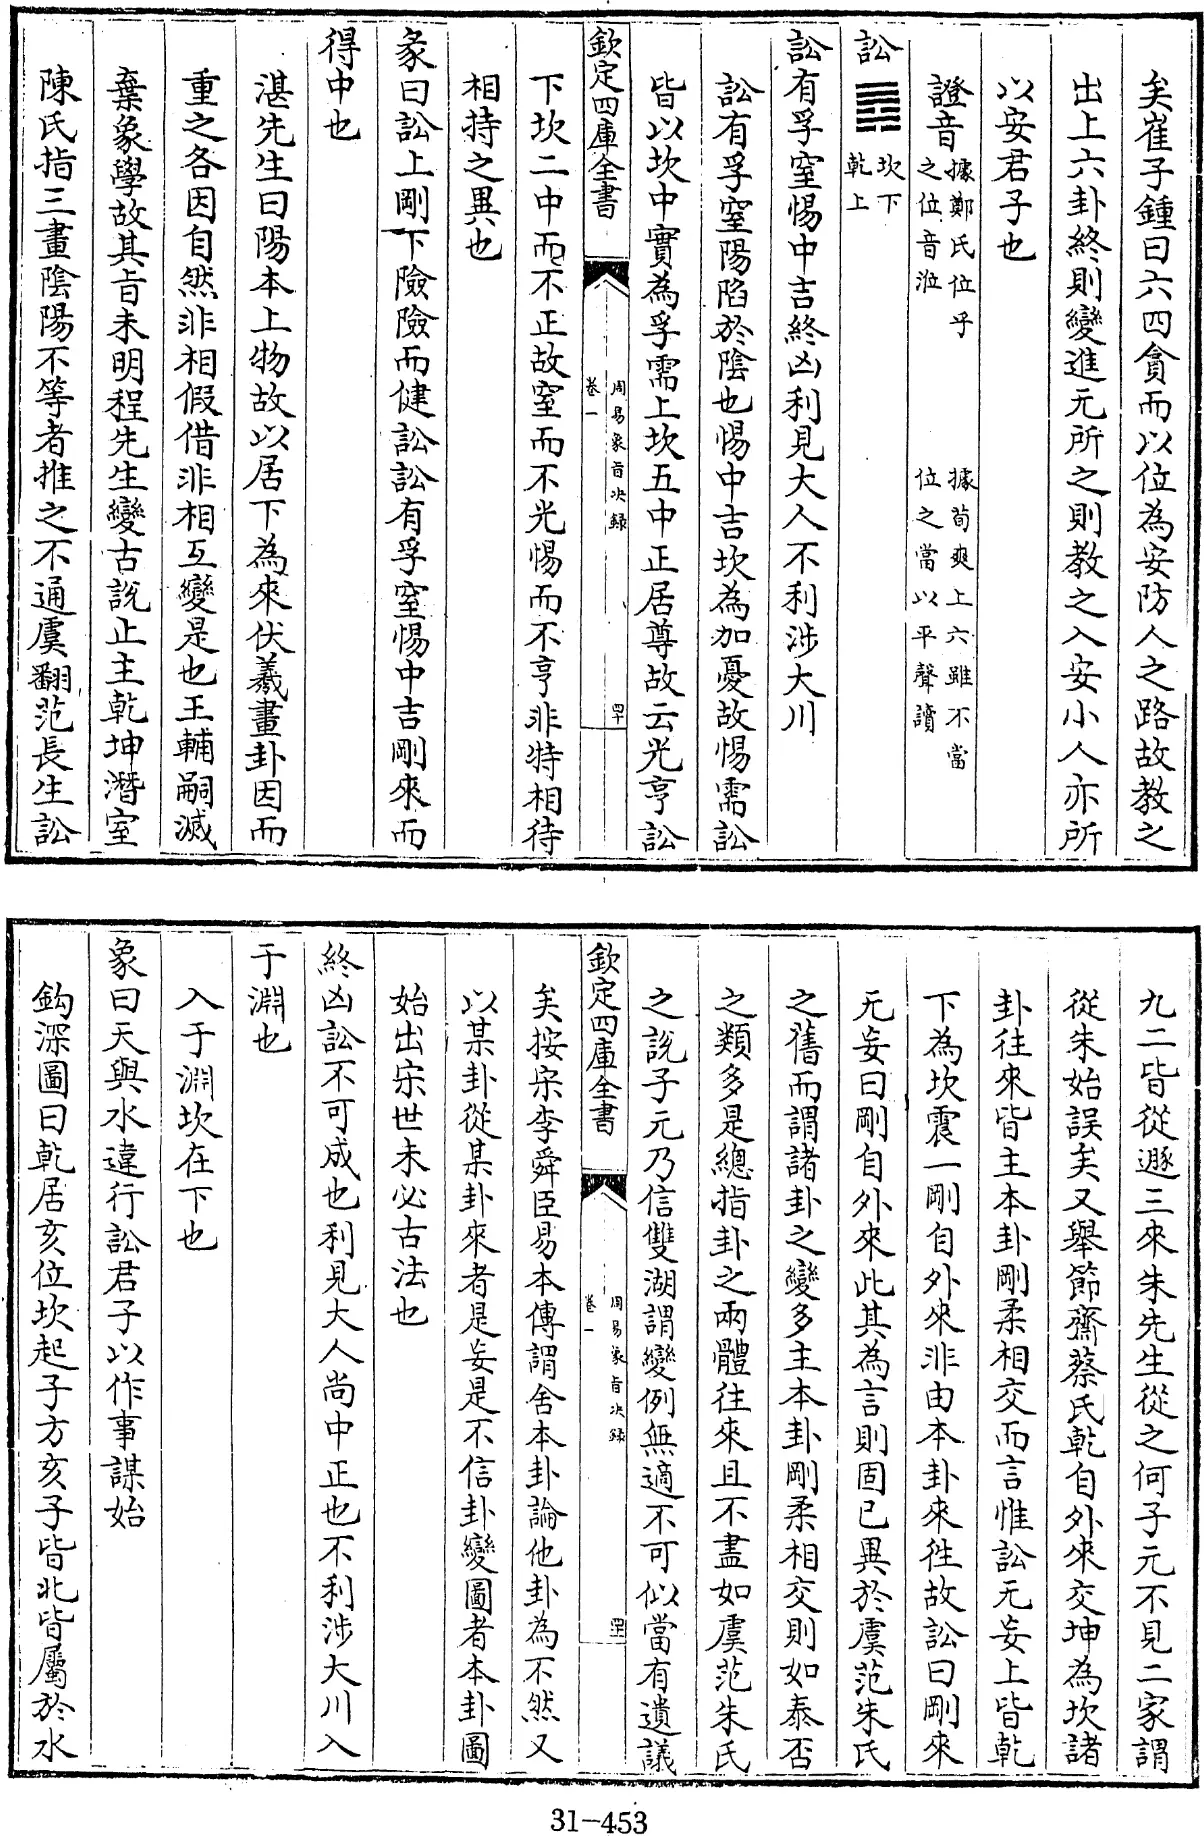 矣崔子鍾曰六四貪而以位為安防人之路故教之
出上六卦終則變進元所之則教之入安小人亦所
以安君子也
證音
據鄭氏位乎
之位音涖
據荀爽上六雖不當
位之當以平聲讀
訟
坎下
乾上
訟有孚窒惕中吉終凶利見大人不利涉大川
訟有孚窒陽陷於陰也惕中吉坎為加憂故惕需訟
皆以坎中實為孚需上坎五中正居尊故云光亨訟
欽定四庫全書
周易象旨决錄
卷一
下坎二中而不正故窒而不光惕而不亨非特相待
相持之異也
彖曰訟上剛下險險而健訟訟有孚窒惕中吉剛來而
得中也
湛先生曰陽本上物故以居下為來伏羲畫卦因而
重之各因自然非相假借非相互變是也王輔嗣滅
棄象學故其旨未明程先生變古說止主乾坤潛室
陳氏指三畫陰陽不等者推之不通虞翻范長生訟
九二皆從遯三來朱先生從之何子元不見二家謂
從朱始誤矣又舉節齋蔡氏乾自外來交坤為坎諸
卦往來皆主本卦剛柔相交而言惟訟无妄上皆乾
下為坎震一剛自外來非由本卦來往故訟曰剛來
无妄曰剛自外來此其為言則固已異於虞范朱氏
之舊而謂諸卦之變多主本卦剛柔相交則如泰否
之類多是總指卦之兩體往來且不盡如虞范朱氏
之說子元乃信雙湖謂變例無適不可似當有遺議
欽定四庫全書
周易象旨决錄
卷一
矣按宋李舜臣易本傳謂舍本卦論他卦為不然又
以某卦從某卦來者是妄是不信卦變圖者本卦圖
始出宋世未必古法也
終凶訟不可成也利見大人尚中正也不利涉大川入
于淵也
入于淵坎在下也
象曰天與水違行訟君子以作事謀始
鈎深圖曰乾居亥位坎起子方亥子皆北皆屬於水
31-453